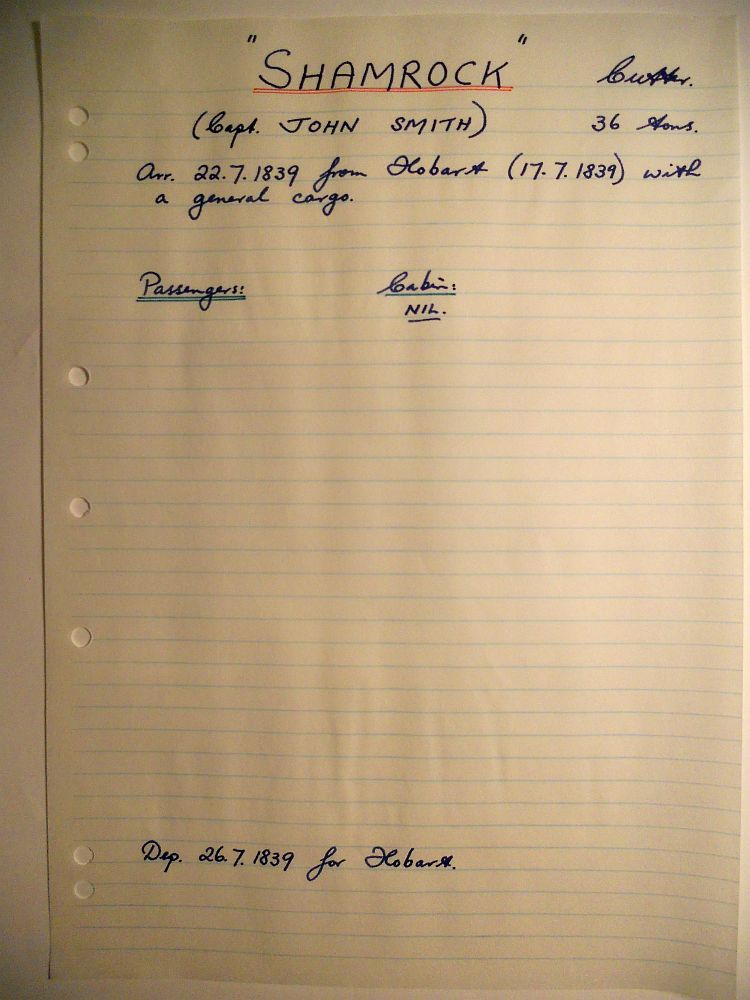 "SHAMROCK" Cutter.
(Capt. JOHN SMITH) 36 tons.
Arr. 22.7.1839 from Hobart (17.7.1839) with
a general cargo.
Passengers: Cabin:
NIL.
Dep. 26.7.1839 for Hobart.